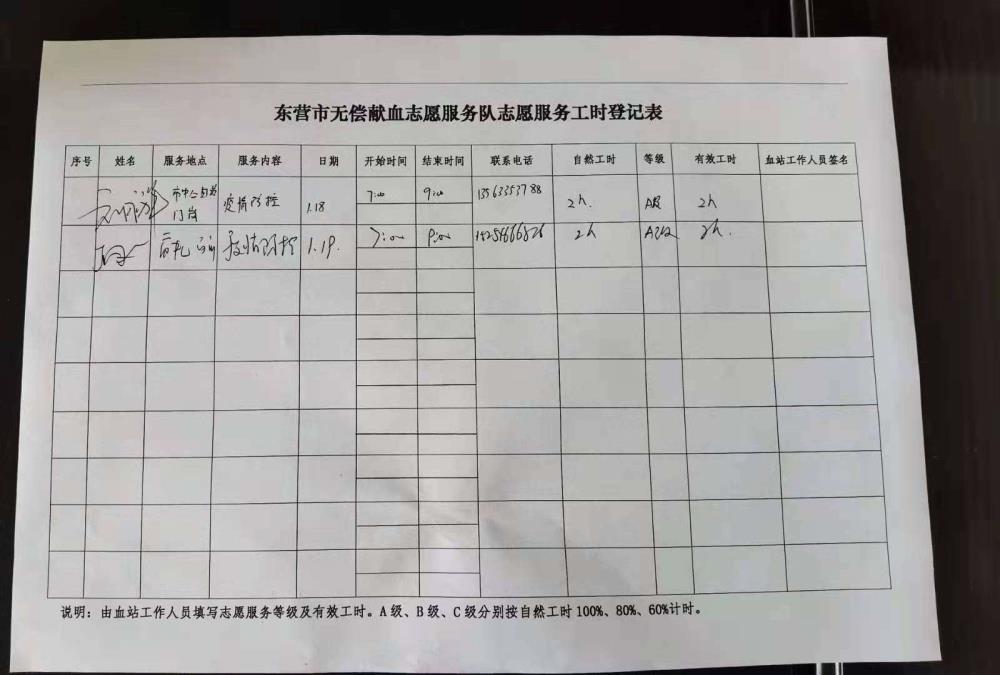 东营市无偿献血志愿服务队志愿服务工时登记表
序号 姓名 服务地点 服务内容 日期 开始时间 结束时间 联系电话 自然工时 等级 有效工时 血站工作人员签名
市中心血站
门岗 疫情防控 1.18 7:00 9:00 13563353788 2h. A级 2h
疫情防控 1.19. 7:00 9:00 2h A级 2h.
说明：由血站工作人员填写志愿服务等级及有效工时。A 级、B 级、C 级分别按自然工时 100%、80%、60%计时。